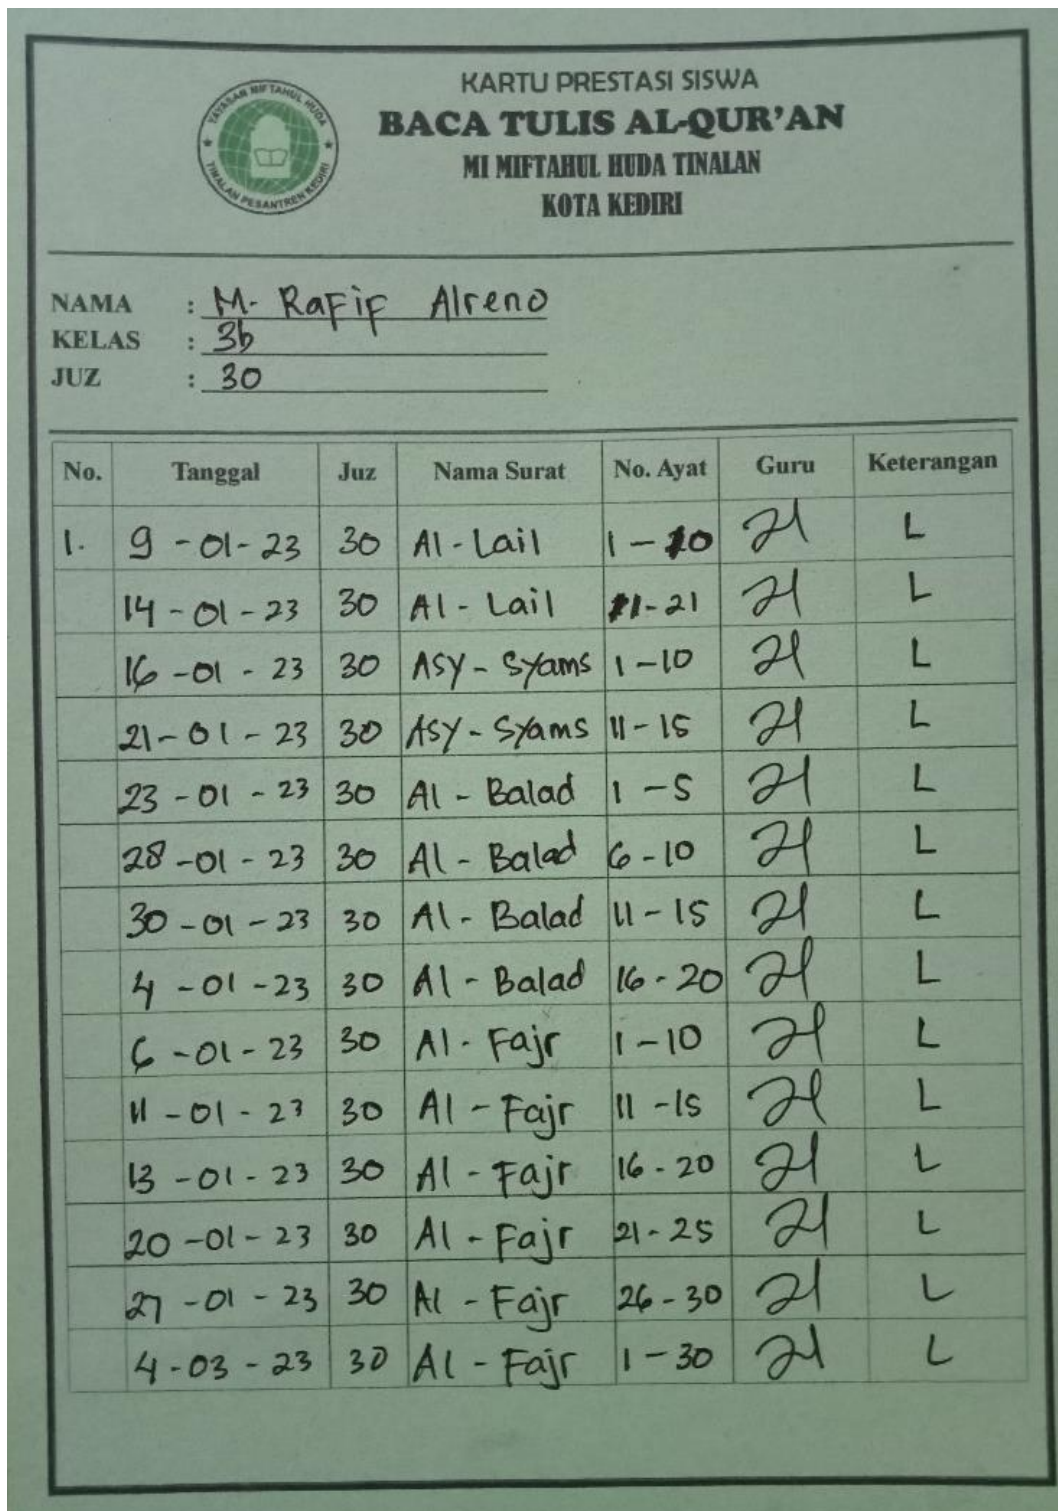 KARTU PRESTASI SISWA
BACA TULIS AL-QUR'AN
MI MIFTAHUL HUDA TINALAN
KOTA KEDIRI
YAYASAN MIFTAHUL HUDA
TINALAN PESANTREN KEDIRI
NAMA : M. Rafif Alreno
KELAS : 3b
JUZ : 30
No. Tanggal Juz Nama Surat No. Ayat Guru Keterangan
1. 9-01-23 30 Al-Lail 1-10 L
14-01-23 30 Al-Lail 11-21 L
16-01-23 30 Asy-Syams 1-10 L
21-01-23 30 Asy-Syams 11-15 L
23-01-23 30 Al-Balad 1-5 L
28-01-23 30 Al-Balad 6-10 L
30-01-23 30 Al-Balad 11-15 L
4-01-23 30 Al-Balad 16-20 L
6-01-23 30 Al-Fajr 1-10 L
11-01-23 30 Al-Fajr 11-15 L
13-01-23 30 Al-Fajr 16-20 L
20-01-23 30 Al-Fajr 21-25 L
27-01-23 30 Al-Fajr 26-30 L
4-03-23 30 Al-Fajr 1-30 L